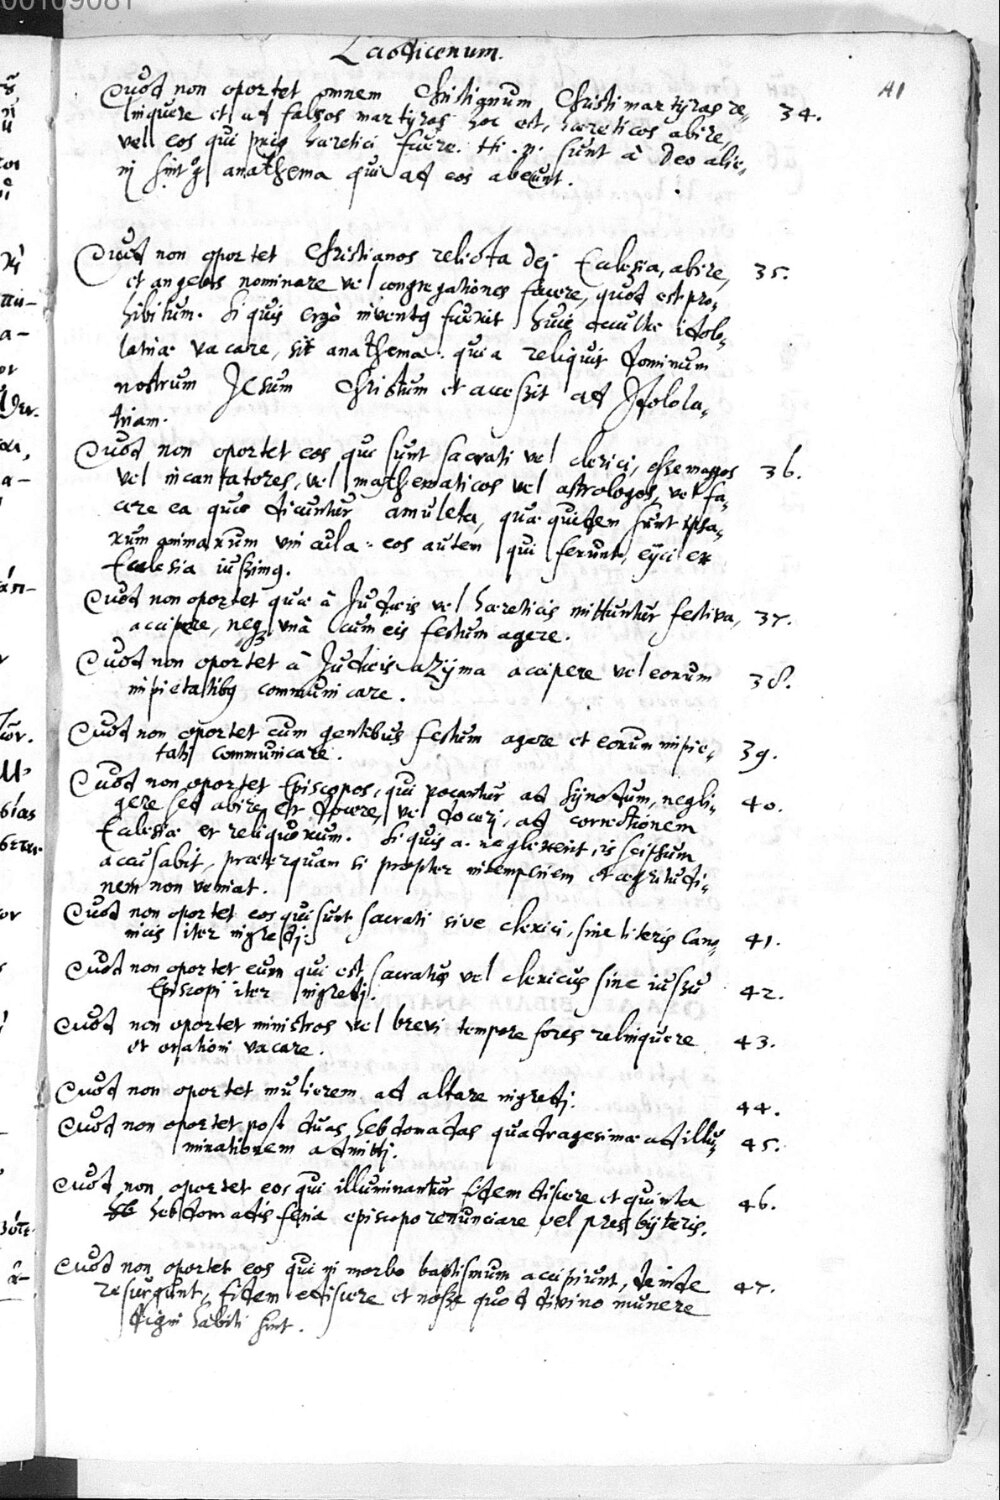 00109081
Laodicenum.
41
Quod non oportet omnem Christianum Christi martyras re- 34.
linquere et ad falsos martyras hoc est, hæreticos abire,
vel eos qui priꝰ hæretici fuere. Hi .n. sunt à Deo alie-
ni sint gͦ anathema qui ad eos abeunt.
Quod non oportet Christianos relicta Dei Ecclesia, abire, 35.
et angelos nominare vel congregationes facere, quod est pro-
hibitum. Si quis ergò inventꝰ fuerit huic occultæ idolo-
latriæ vacare, sit anathema. quia reliquit Dominum
nostrum Jesum Christum et accessit ad Idolola-
triam.
Quod non oportet eos qui sunt sacrati vel clerici, esse magos 36.
vel incantatores, vel mathematicos vel astrologos, vel fa-
cere ea quæ dicuntur amuleta, quæ quidem sunt ipsa-
rum animarum vincula: eos autem qui ferunt, eijci ex
Ecclesia iussimꝰ.
Quod non oportet quæ à Judæis vel hæreticis mittuntur festiva, 37.
accipere, neqꝫ unà cum eis festum agere.
Quod non oportet à Judæis azyma accipere vel eorum 38.
impietatibꝰ communicare.
Quod non oportet cum gentibus festum agere et eorum impie- 39.
tati communicare.
Quod non oportet Episcopos, qui vocantur ad Synodum, negli- 40.
gere sed abire et docere, vel doceri, ad correctionem
Ecclesiæ et reliquorum. Si quis a. neglexerit, is seipsum
accusabit, præterquam si propter intemperiem et ægritudi-
nem non veniat.
Quod non oportet eos qui sunt sacrati sive clerici, sine literis Cano- 41.
nicis iter ingredi.
Quod non oportet eum qui est sacratus vel clericus sine iussu 42.
Episcopi iter ingredi.
Quod non oportet ministros vel brevi tempore fores relinquere 43.
et orationi vacare.
Quod non oportet mulierem ad altare ingredi. 44.
Quod non oportet post duas hebdomadas quadragesimæ ad illu- 45.
minationem admitti.
Quod non oportet eos qui illuminantur fidem discere et quinta 46.
hebdomadis feria episcopo renunciare vel presbyteris.
Quod non oportet eos qui in morbo baptismum accipiunt, deinde 47.
resurgunt, fidem ediscere et nosse quod divino munere
digni habiti sint.